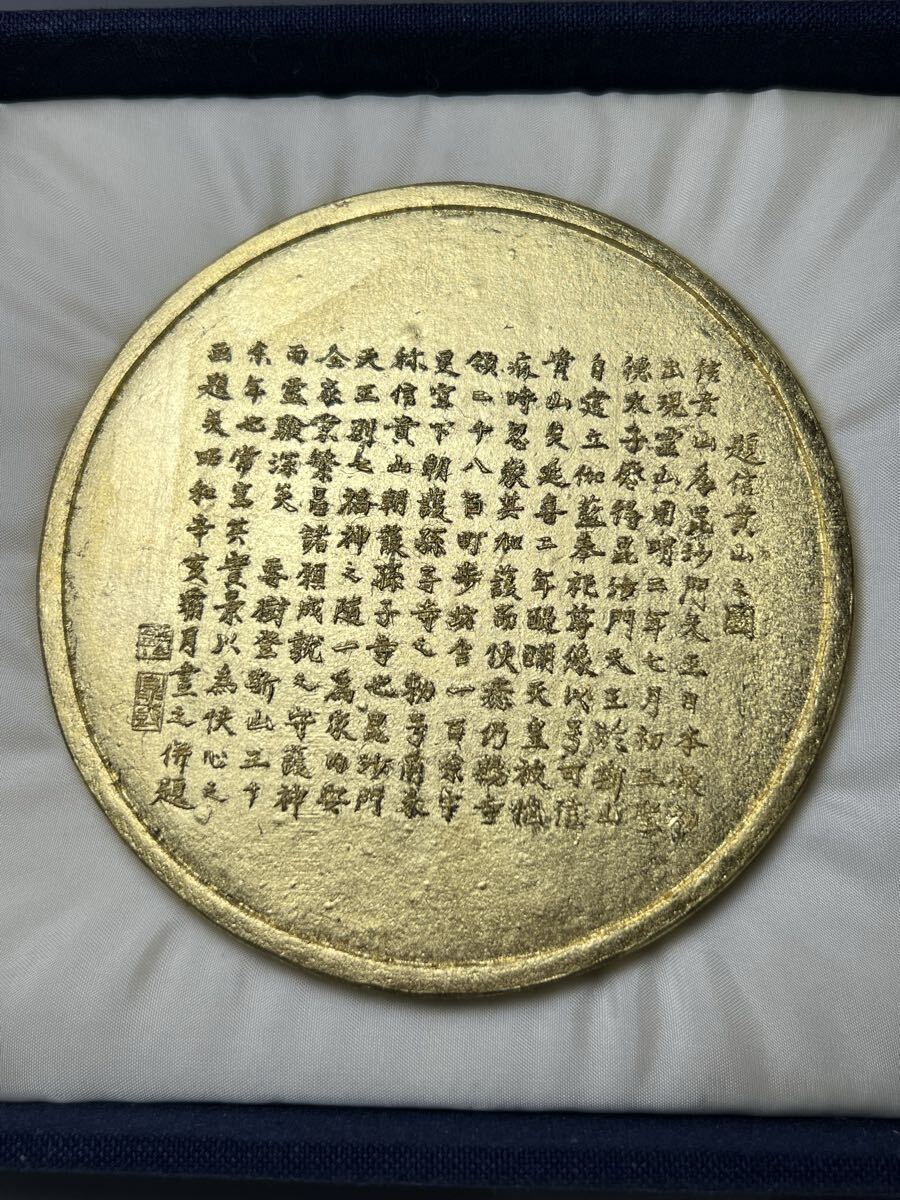 題信貴山之圖
信貴山為毘沙門天王日本最初
出現霊山用明二年七月初五聖
徳太子感得毘沙門天王於斯山
自建立伽藍奉祀尊像以号可信
貴山矣延喜二年醍醐天皇被悩
疾時忽蒙其加護而快癒仍賜寺
領二千八百町歩坊舎一百余宇
星霊下朝護孫子寺之勅号爾来
称信貴山朝護孫子寺也毘沙門
天王則七福神之随一為家内安
全家業繁昌諸願成就之守護神
而霊験深矣 春樹登斯山三十
余年七常其豊景以為快心之
画題矣昭和辛亥霜月畫之併題